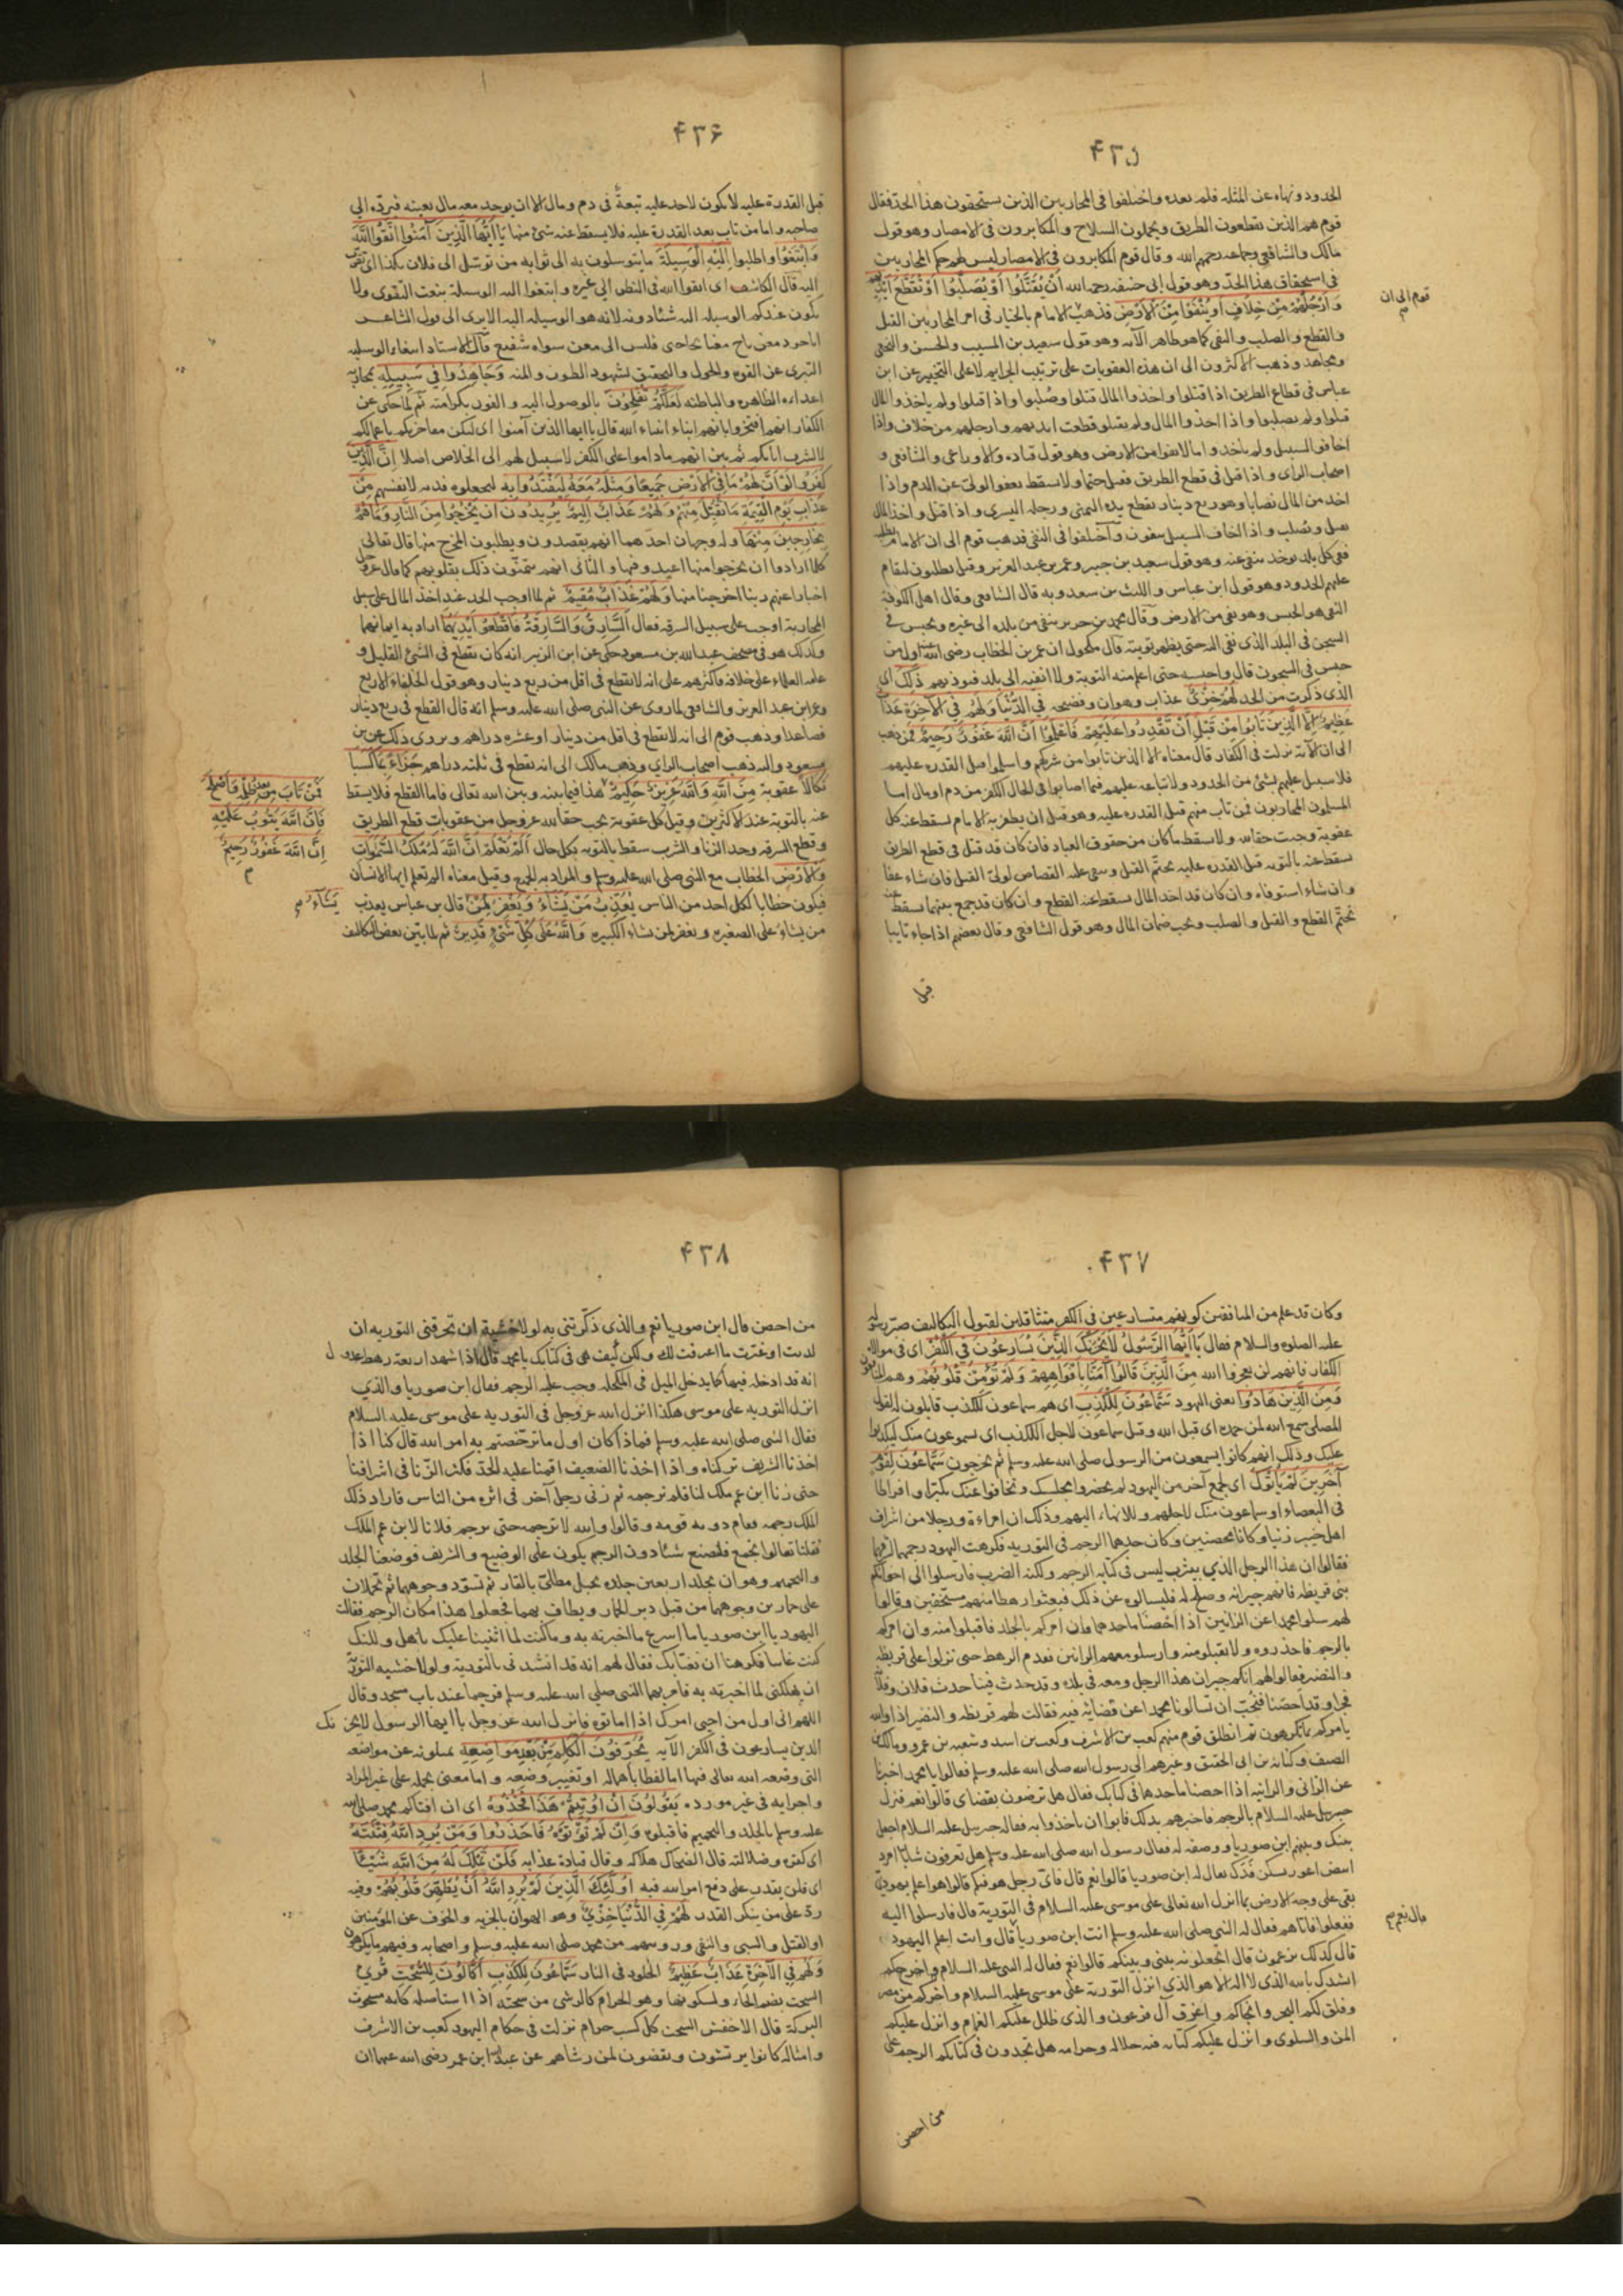 ٤٣٥
الحدود ونهاه عن المثلة فلم يعده واختلفوا في المحاربين الذين يستحقون هذا الحد فقال
قوم هم الذين يقطعون الطريق ويحملون السلاح والمكابرون في الامصار وهو قول
مالك والشافعي وجماعه رحمهم الله وقال قوم المكابرون في الامصار ليس لهم حكم المحاربين
في استحقاق هذا الحد وهو قول ابي حنيفه رحمه الله أَنْ يُقَتَّلُوا أَوْ يُصَلَّبُوا أَوْ تُقَطَّعَ أَيْدِيهِمْ
وَأَرْجُلُهُمْ مِنْ خِلَافٍ أَوْ يُنْفَوْا مِنَ الْأَرْضِ فذهب الامام بالخيار في امر المحاربين القتل
قوم الى ان
والقطع والصلب والنفي كما هو ظاهر الآية وهو قول سعيد بن المسيب والحسن والنخعي
ومجاهد وذهب الاكثرون الى ان هذه العقوبات على ترتيب الجرايم لا على التخيير عن ابن
عباس في قطاع الطريق اذا قتلوا واخذوا المال قتلوا وصُلبوا واذا قتلوا ولم ياخذوا المال
قتلوا ولم يصلبوا واذا اخذوا المال ولم يقتلوا قطعت ايديهم وارجلهم من خلاف واذا
اخافوا السبيل ولم ياخذوا مالا نفوا من الارض وهو قول قتاده والاوزاعى والشافعى و
اصحاب الراى واذا قتل فى قطع الطريق فقتل حتما ولا يسقط بعفو الولىّ عن الدم واذا
اخذ من المال نصابا وهو ربع دينار تقطع يده اليمنى ورجله اليسرى واذا قتل واخذ المال
يقتل ويصلب واذا اخاف السبيل ينفون واختلفوا في النفي فذهب قوم الى ان الامام يطلبه
ففي كل بلد يوجد ينفى عنه وهو قول سعيد بن جبير وعمر بن عبد العزيز وقيل يطلبون ليقام
عليهم الحدود وهو قول ابن عباس والليث بن سعد وبه قال الشافعى وقال اهل الكوفة
النفي هو الحبس وهو نفي من الارض وقال محمد بن جرير ينفى من بلده الى غيره ويحبس في
السجن في البلد الذى نفى اليه حتى يظهر توبته قال مكحول ان عمر بن الخطاب رضى الله عنه اول من
حبس في السجون قال واحبسه حتى اعلم منه التوبة ولا انفيه الى بلد فيوذيهم ذَلِكَ اى
الذى ذكرت من الحد لَهُمْ خِزْىٌ عذاب وهوان وفضيحه فِي الدُّنْيَا وَلَهُمْ فِي الْآخِرَةِ عَذَابٌ
عَظِيمٌ إِلَّا الَّذِينَ تَابُوا مِنْ قَبْلِ أَنْ تَقْدِرُوا عَلَيْهِمْ فَاعْلَمُوا أَنَّ اللَّهَ غَفُورٌ رَحِيمٌ فمن ذهب
الى ان الآية نزلت في الكفار قال معناه الا الذين تابوا من شركهم واسلموا قبل القدره عليهم
فلا سبيل عليهم بشئ من الحدود ولا تباعه عليهم فيما اصابوا في الحال الكفر من دم او مال اما
المسلمون المحاربون فمن تاب منهم قبل القدره عليه وهو قبل ان يظفر به الامام يسقط عنه كل
عقوبة وجبت حقا لله ولا يسقط ما كان من حقوق العباد فان كان قد قتل في قطع الطريق
يسقط عنه بالتوبه قبل القدره عليه تحتّم القتل وبقى عليه القصاص لولىّ القتيل فان شاء عفا
وان شاء استوفاه وان كان قد اخذ المال يسقط عنه القطع وان كان قد جمع بينهما يسقط عنه
تحتّم القطع والقتل والصلب ويجب ضمان المال وهو قول الشافعى وقال بعضهم اذا جاء تايبا
قبل
٤٣٦
قبل القدرة عليه لا يكون لاحد عليه تبعةٌ في دم ومال الا ان يوجد معه مال بعينه فيردّه الى
صاحبه واما من تاب بعد القدرة عليه فلا يسقط عنه شئ منها يَا أَيُّهَا الَّذِينَ آمَنُوا اتَّقُوا اللَّهَ
وَابْتَغُوا واطلبوا إِلَيْهِ الْوَسِيلَةَ ما يتوسلون به الى ثوابه من توسّل الى فلان بكذا اى تقرب
اليه قال الكاشف اى اتقوا الله في النظر الى غيره وابتغوا اليه الوسيلة بنعت التقوى ولا
يكون عندكم الوسيله اليه شئا دونه لانه هو الوسيله اليه الا يرى الى قول الشاعر
ايا جود معن ناج معنا بحاجتى فليس الى معن سواه شفيع قال الاستاد ابتغاء الوسيله
التبرى عن القوه والحول والتحقيق بشهود الطول والمنه وَجَاهِدُوا فِي سَبِيلِهِ بمحاربة
اعدائه الظاهره والباطنه لَعَلَّكُمْ تُفْلِحُونَ بالوصول اليه والفوز بكرامته ثم لما حكى عن
الكفار انهم افتخروا بانهم ابناء انبياء الله قال يا ايها الذين آمنوا اى ليكن مفاخرتكم باعمالكم
لا بشرف آبائكم ثم بين انهم ما داموا على الكفر لا سبيل لهم الى الخلاص اصلا إِنَّ الَّذِينَ
كَفَرُوا لَوْ أَنَّ لَهُمْ مَا فِي الْأَرْضِ جَمِيعًا وَمِثْلَهُ مَعَهُ لِيَفْتَدُوا بِهِ ليجعلوه فديه لانفسهم مِنْ
عَذَابِ يَوْمِ الْقِيَمَةِ مَا تُقُبِّلَ مِنْهُمْ وَلَهُمْ عَذَابٌ أَلِيمٌ يُرِيدُونَ أَنْ يَخْرُجُوا مِنَ النَّارِ وَمَا هُمْ
بِخَارِجِينَ مِنْهَا وله وجهان احدهما انهم يقصدون ويطلبون المخرج منها قال تعالى
كلما ارادوا ان يخرجوا منها اعيدوا فيها والثانى انهم يتمنّون ذلك بقلوبهم كما قال عز وجل
اخبارا عنهم ربنا اخرجنا منها وَلَهُمْ عَذَابٌ مُقِيمٌ ثم لما اوجب الحد عند اخذ المال على سبيل
المحاربة اوجب على سبيل السرقه فقال السَّارِقُ وَالسَّارِقَةُ فَاقْطَعُوا أَيْدِيَهُمَا اراد به ايمانهما
وكذلك هو فى مصحف عبد الله بن مسعود حكى عن ابن الزبير انه كان يقطع فى الشئ القليل و
عامه العلماء على خلافه فاكثرهم على انه لا يقطع في اقل من ربع دينار وهو قول الخلفاء الاربع
وعمر ابن عبد العزيز والشافعى لما روى عن النبى صلى الله عليه وسلم انه قال القطع فى ربع دينار
فصاعدا وذهب قوم الى انه لا تقطع في اقل من دينار او عشره دراهم ويروى ذلك عن بن
مسعود واليه ذهب اصحاب الراي وذهب مالك الى انه تقطع في ثلثه دراهم جَزَاءً بِمَا كَسَبَا
نَكَالًا عقوبة مِنَ اللَّهِ وَاللَّهُ عَزِيزٌ حَكِيمٌ هذا فيما بينه وبين الله تعالى فاما القطع فلا يسقط
فَمَنْ تَابَ مِنْ بَعْدِ ظُلْمِهِ وَأَصْلَحَ
فَإِنَّ اللَّهَ يَتُوبُ عَلَيْهِ
إِنَّ اللَّهَ غَفُورٌ رَحِيمٌ
عنه بالتوبة عند الاكثرين وقيل كل عقوبة تجب حقا لله عز وجل من عقوبات قطع الطريق
وقطع السرقه وحد الزنا والشرب سقط بالتوبه بكل حال أَلَمْ تَعْلَمْ أَنَّ اللَّهَ لَهُ مُلْكُ السَّمَوَاتِ
وَالْأَرْضِ الخطاب مع النبى صلى الله عليه وسلم والمراد به الجميع وقيل معناه الم تعلم ايها الانسان
فيكون خطابا لكل احد من الناس يُعَذِّبُ مَنْ يَشَاءُ وَيَغْفِرُ لِمَنْ قال بن عباس يعذب
يَشَاءُ
من يشاء على الصغيره ويغفر لمن يشاء الكبيره وَاللَّهُ عَلَى كُلِّ شَيْءٍ قَدِيرٌ ثم لما بيّن بعض التكاليف
٤٣٧
وكان قد علم من المنافقين كونهم متسارعين في الكفر متثاقلين لقبول التكاليف صبّر رسوله
عليه الصلوه والسلام فقال يَا أَيُّهَا الرَّسُولُ لَا يَحْزُنْكَ الَّذِينَ يُسَارِعُونَ فِي الْكُفْرِ اى فى موالاة
الكفار فانهم لن يعجزوا الله مِنَ الَّذِينَ قَالُوا آمَنَّا بِأَفْوَاهِهِمْ وَلَمْ تُؤْمِنْ قُلُوبُهُمْ وهم المنافقون
وَمِنَ الَّذِينَ هَادُوا يعنى اليهود سَمَّاعُونَ لِلْكَذِبِ اى هم سماعون للكذب قابلون له كقول
المصلى سمع الله لمن حمده اى قبل الله وقيل سماعون لاجل الكذب اى يسمعون منك ليكذبوا
عليك وذلك انهم كانوا يسمعون من الرسول صلى الله عليه وسلم ثم يخرجون سَمَّاعُونَ لِقَوْمٍ
آخَرِينَ لَمْ يَأْتُوكَ اى لجمع آخر من اليهود لم يحضروا مجلسك وتجافوا عنك تكبرا وافراطا
فى البغضاء او سماعون منك لاجلهم وللانهاء اليهم وذلك ان امراءة ورجلا من اشراف
اهل خيبر زنيا وكانا محصنين وكان حدهما الرجم فى التوريه فكرهت اليهود رجمهما لشرفهما
فقالوا ان هذا الرجل الذي بيثرب ليس فى كتابه الرجم ولكنه الضرب فارسلوا الى اخوانكم
بنى قريظه فانهم جيرانه وصلح له فليسالوه عن ذلك فبعثوا رهطا منهم مستخفين وقالوا
لهم سلوا محمدا عن الزانيين اذا احصنا ما حدهما فان امركم بالجلد فاقبلوا منه وان امركم
بالرجم فاحذروه ولا تقبلوا منه وارسلوا معهم الزانيين فقدم الرهط حتى نزلوا على قريظه
والنضير فقالوا لهم انكم جيران هذا الرجل ومعه فى بلده وقد حدث فينا حدث فلان وفلانة
فجرا وقد احصنا فنُحب ان تسالوا لنا محمدا عن قضائه فيه فقالت لهم قريظه والنضير اذا والله
يامركم بما تكرهون ثم انطلق قوم منهم كعب بن الاشرف وكعب بن اسد وشعبه بن عمرو ومالك بن
الصيف وكنانه بن ابى الحقيق وغيرهم الى رسول الله صلى الله عليه وسلم فقالوا يا محمد اخبرنا
عن الزانى والزانيه اذا احصنا ما حدهما في كتابك فقال هل ترضون بقضاى قالوا نعم فنزل
جبريل عليه السلام بالرجم فاخبرهم بذلك فابوا ان ياخذوا به فقال له جبريل عليه السلام اجعل
بينك وبينهم ابن صوريا ووصفه له فقال رسول الله صلى الله عليه وسلم هل تعرفون شابا امرد
ابيض اعور يسكن فدك يقال له ابن صوريا قالوا نعم قال فاىّ رجل هو فيكم قالوا هو اعلم يهودىّ
بقى على وجه الارض بما انزل الله تعالى على موسى عليه السلام فى التورية قال فارسلوا اليه
ففعلوا فاتاهم فقال له النبى صلى الله عليه وسلم انت ابن صوريا قال وانت اعلم اليهود
قال نعم
قال كذلك يزعمون قال اتجعلونه بينى وبينكم قالوا نعم فقال له النبى عليه السلام
انشدك بالله الذى لا اله الا هو الذى انزل التورية على موسى عليه السلام واخرجكم من مصر
وفلق لكم البحر وانجاكم واغرق آل فرعون والذى ظلل عليكم الغمام وانزل عليكم
المن والسلوى وانزل عليكم كتابه فيه حلاله وحرامه هل تجدون فى كتابكم الرجم على
من احصن
٤٣٨
من احصن قال ابن صوريا نعم والذى ذكّرتنى به لولا خشية ان تحرقنى التوريه ان
كذبت او غيّرت ما اعترفت لك ولكن كيف هى فى كتابك يا محمد قال اذا شهد اربعة رهط عدول
انه قد ادخله فيها كما يدخل الميل فى المكحله وجب عليه الرجم فقال ابن صوريا والذي
انزل التوريه على موسى هكذا انزل الله عز وجل فى التوريه على موسى عليه السلام
فقال النبى صلى الله عليه وسلم فماذا كان اول ما ترخصتم به امر الله قال كنا اذا
اخذنا الشريف تركناه واذا اخذنا الضعيف اقمنا عليه الحد فكثر الزنا فى اشرافنا
حتى زنا ابن عم ملك لنا فلم نرجمه ثم زنى رجل آخر فى اثره من الناس فاراد ذلك
الملك رجمه فقام دونه قومه وقالوا والله لا ترجمه حتى يرجم فلانا لابن عم الملك
فقلنا تعالوا نجتمع فلنصنع شئا دون الرجم يكون على الوضيع والشريف فوضعنا الجلد
والتحميم وهو ان يجلد اربعين جلده بحبل مطلىّ بالقار ثم تسوّد وجوههما ثم يحملان
على حمارين وجوههما من قبل دبر الحمار ويطاف بهما فجعلوا هذا مكان الرجم فقالت
اليهود يا ابن صوريا ما اسرع ما اخبرته به وما كنت لما اثنينا عليك باهل ولكنك
كنت غايبا فكرهنا ان نغتابك فقال لهم انه قد انشدنى بالتورية ولولا خشيه التورية
ان تهلكنى لما اخبرته به فامر بهما النبى صلى الله عليه وسلم فرجما عند باب مسجده وقال
اللهم انى اول من احيى امرك اذ اماتوه فانزل الله عز وجل يا ايها الرسول لا يحزنك
الذين يسارعون فى الكفر الآيه يُحَرِّفُونَ الْكَلِمَ مِنْ بَعْدِ مَوَاضِعِهِ يميلونه عن مواضعه
التى وضعه الله تعالى فيها اما لفظا باهماله او تغيير وضعه واما معنى بحمله على غير المراد
واجرايه فى غير مورده يَقُولُونَ إِنْ أُوتِيتُمْ هَذَا فَخُذُوهُ اى ان افتاكم محمد صلى الله
عليه وسلم بالجلد والتحميم فاقبلوه وَإِنْ لَمْ تُؤْتَوْهُ فَاحْذَرُوا وَمَنْ يُرِدِ اللَّهُ فِتْنَتَهُ
اى كفره وضلالته قال الضحاك هلاكه وقال قتادة عذابه فَلَنْ تَمْلِكَ لَهُ مِنَ اللَّهِ شَيْئًا
اى فلن يقدر على دفع امر الله فيه أُولَئِكَ الَّذِينَ لَمْ يُرِدِ اللَّهُ أَنْ يُطَهِّرَ قُلُوبَهُمْ وفيه
ردّ على من ينكر القدر لَهُمْ فِي الدُّنْيَا خِزْيٌ وهو الهوان بالجزيه والخوف عن المؤمنين
او القتل والسبى والنفى ورويتهم من محمد صلى الله عليه وسلم واصحابه وفيهم ما يكرهون
وَلَهُمْ فِي الْآخِرَةِ عَذَابٌ عَظِيمٌ الخلود فى النار سَمَّاعُونَ لِلْكَذِبِ أَكَّالُونَ لِلسُّحْتِ قُرئ
السحت بضم الحاء ولسكونها وهو الحرام كالرشى من سحته اذا استاصله كانه مسحوت
البركة قال الاخفش السحت كل كسب حرام نزلت فى حكام اليهود كعب بن الاشرف
وامثاله كانوا يرتشون ويقضون لمن رشاهم عن عبد الله ابن عمر رضى الله عنهما ان